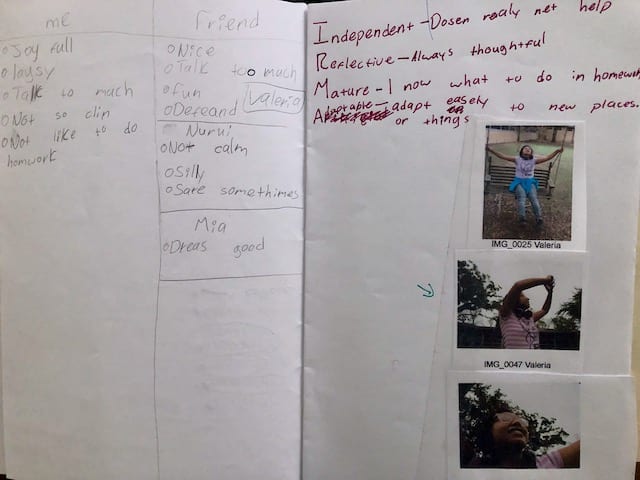 me
o Joy full
o lousy
o Talk to much
o Not so clin
o Not like to do
homwork
Friend
o Nice
o Talk too much
o fun
o Defeand
Valeria
Nurui
o Not calm
o Silly
o Sare somethimes
Mia
o Dreas good
Independent - Dosen realy net help
Reflective - Always thoughtful
Mature - I now what to do in homework
Adaptable - adapt easely to new places
or things
IMG_0025 Valeria
IMG_0047 Valeria